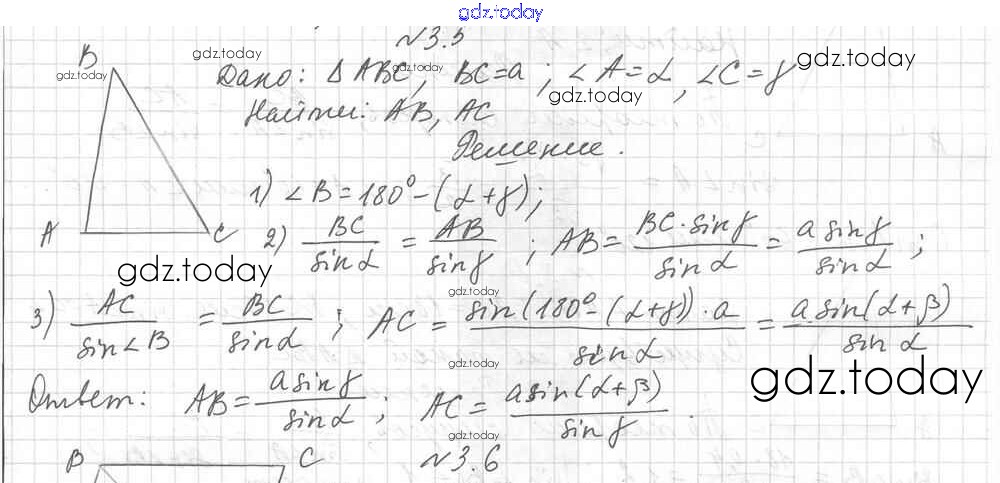 gdz.today
№3.5
B gdz.today
gdz.today Дано: Δ ABC, BC=a; ∠A=α, ∠C=γ gdz.today
gdz.today
gdz.today
Найти: AB, AC
Решение.
1) ∠B=180°-(α+γ);
A C 2) BC/sinα = AB/sinγ; AB = BC·sinγ/sinα = a sinγ/sinα;
gdz.today
gdz.today
3) AC/sin∠B = BC/sinα; AC = sin(180°-(α+γ))·a/sinα = a sin(α+β)/sinα
gdz.today
gdz.today
Ответ: AB = a sinγ/sinα; AC = a sin(α+β)/sinγ.
gdz.today
B C №3.6